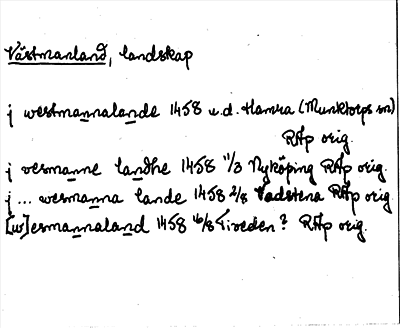 Västmanland, landskap
j westmannalande 1458 u.d. Hamra (Munktorps sn)
RAp orig.
j vesmanne landhe 1458 11/3 Nyköping RAp orig.
j ... wesmanna lande 1458 2/8 Vadstena RAp orig
[w]esmannaland 1458 16/8 Tiveden? RAp orig.